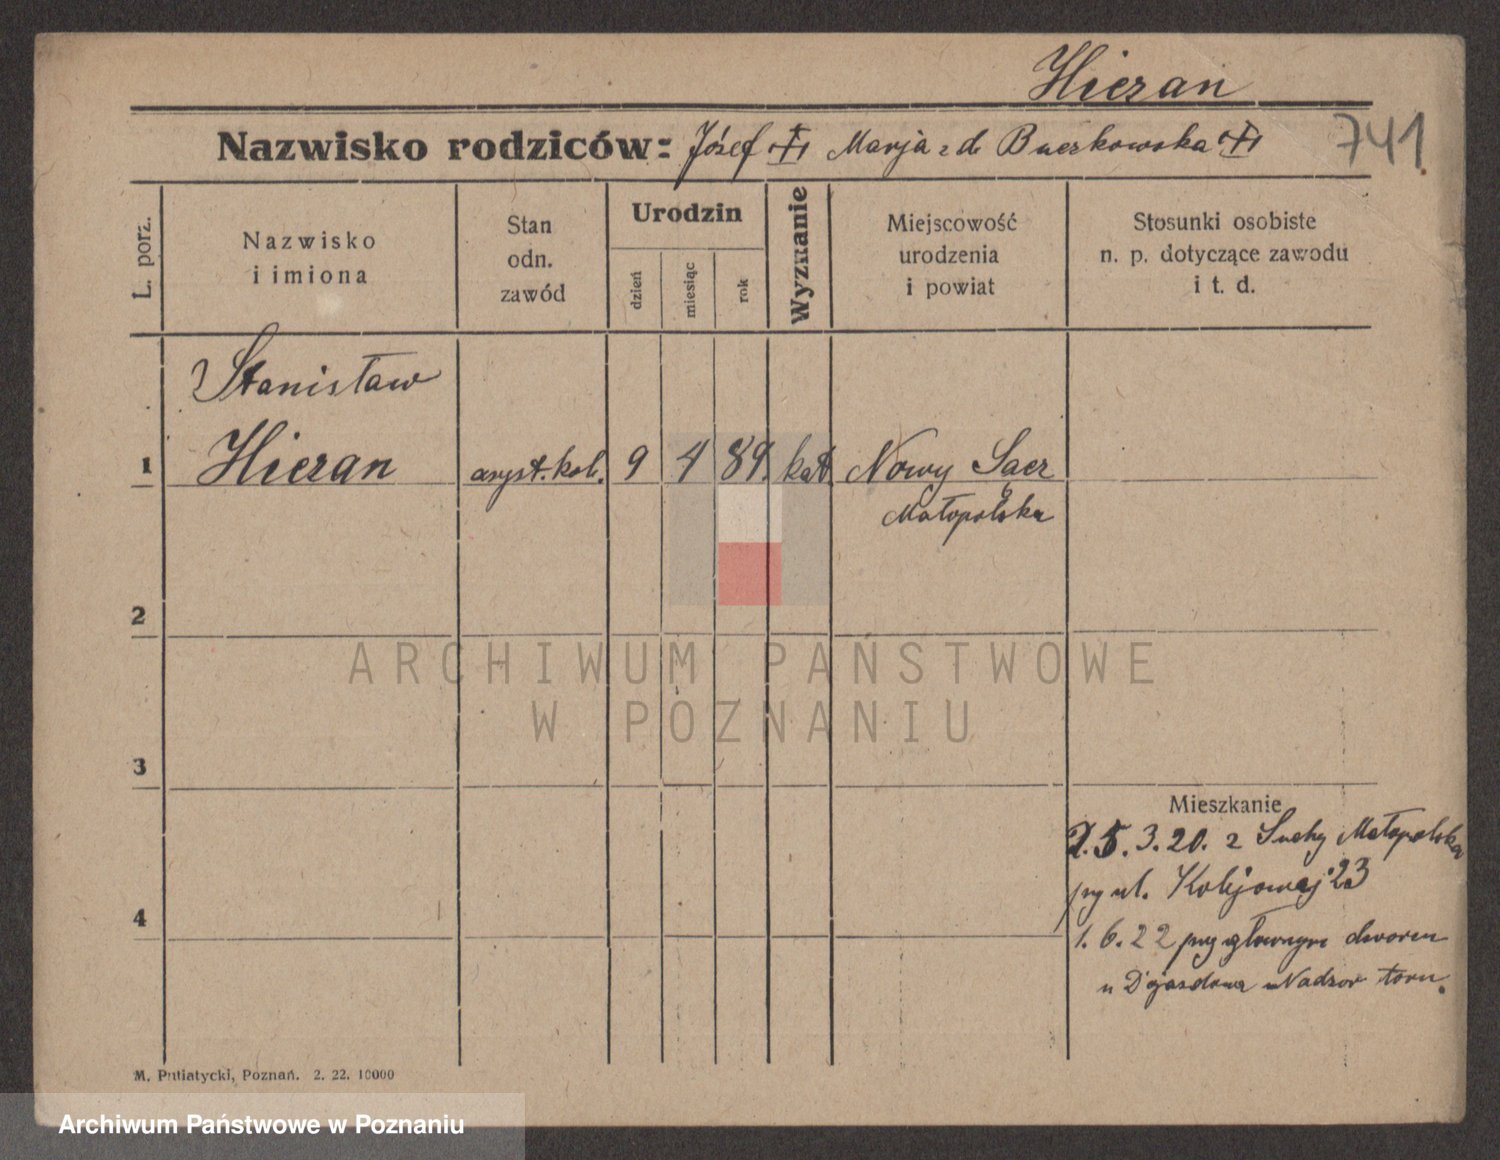 Hieran
Nazwisko rodziców: Józef Marja z d. Buczkowska
741
L. porz.
Nazwisko
i imiona
Stan
odn.
zawód
Urodzin
dzień
miesiąc
rok
Wyznanie
Miejscowość
urodzenia
i powiat
Stosunki osobiste
n. p. dotyczące zawodu
i t. d.
Stanisław
1 Hieran asyst. kol. 9 4 89. kat. Nowy Sącz
Małopolska
2
ARCHIWUM PAŃSTWOWE
W POZNANIU
3
Mieszkanie
5. 3. 20. z Suchy Małopolska
przy ul. Kolejowej 23
4
1. 6. 22 przy głównym dworcu
u Nadzor toru.
M. Putiatycki, Poznań. 2. 22. 10000
Archiwum Państwowe w Poznaniu